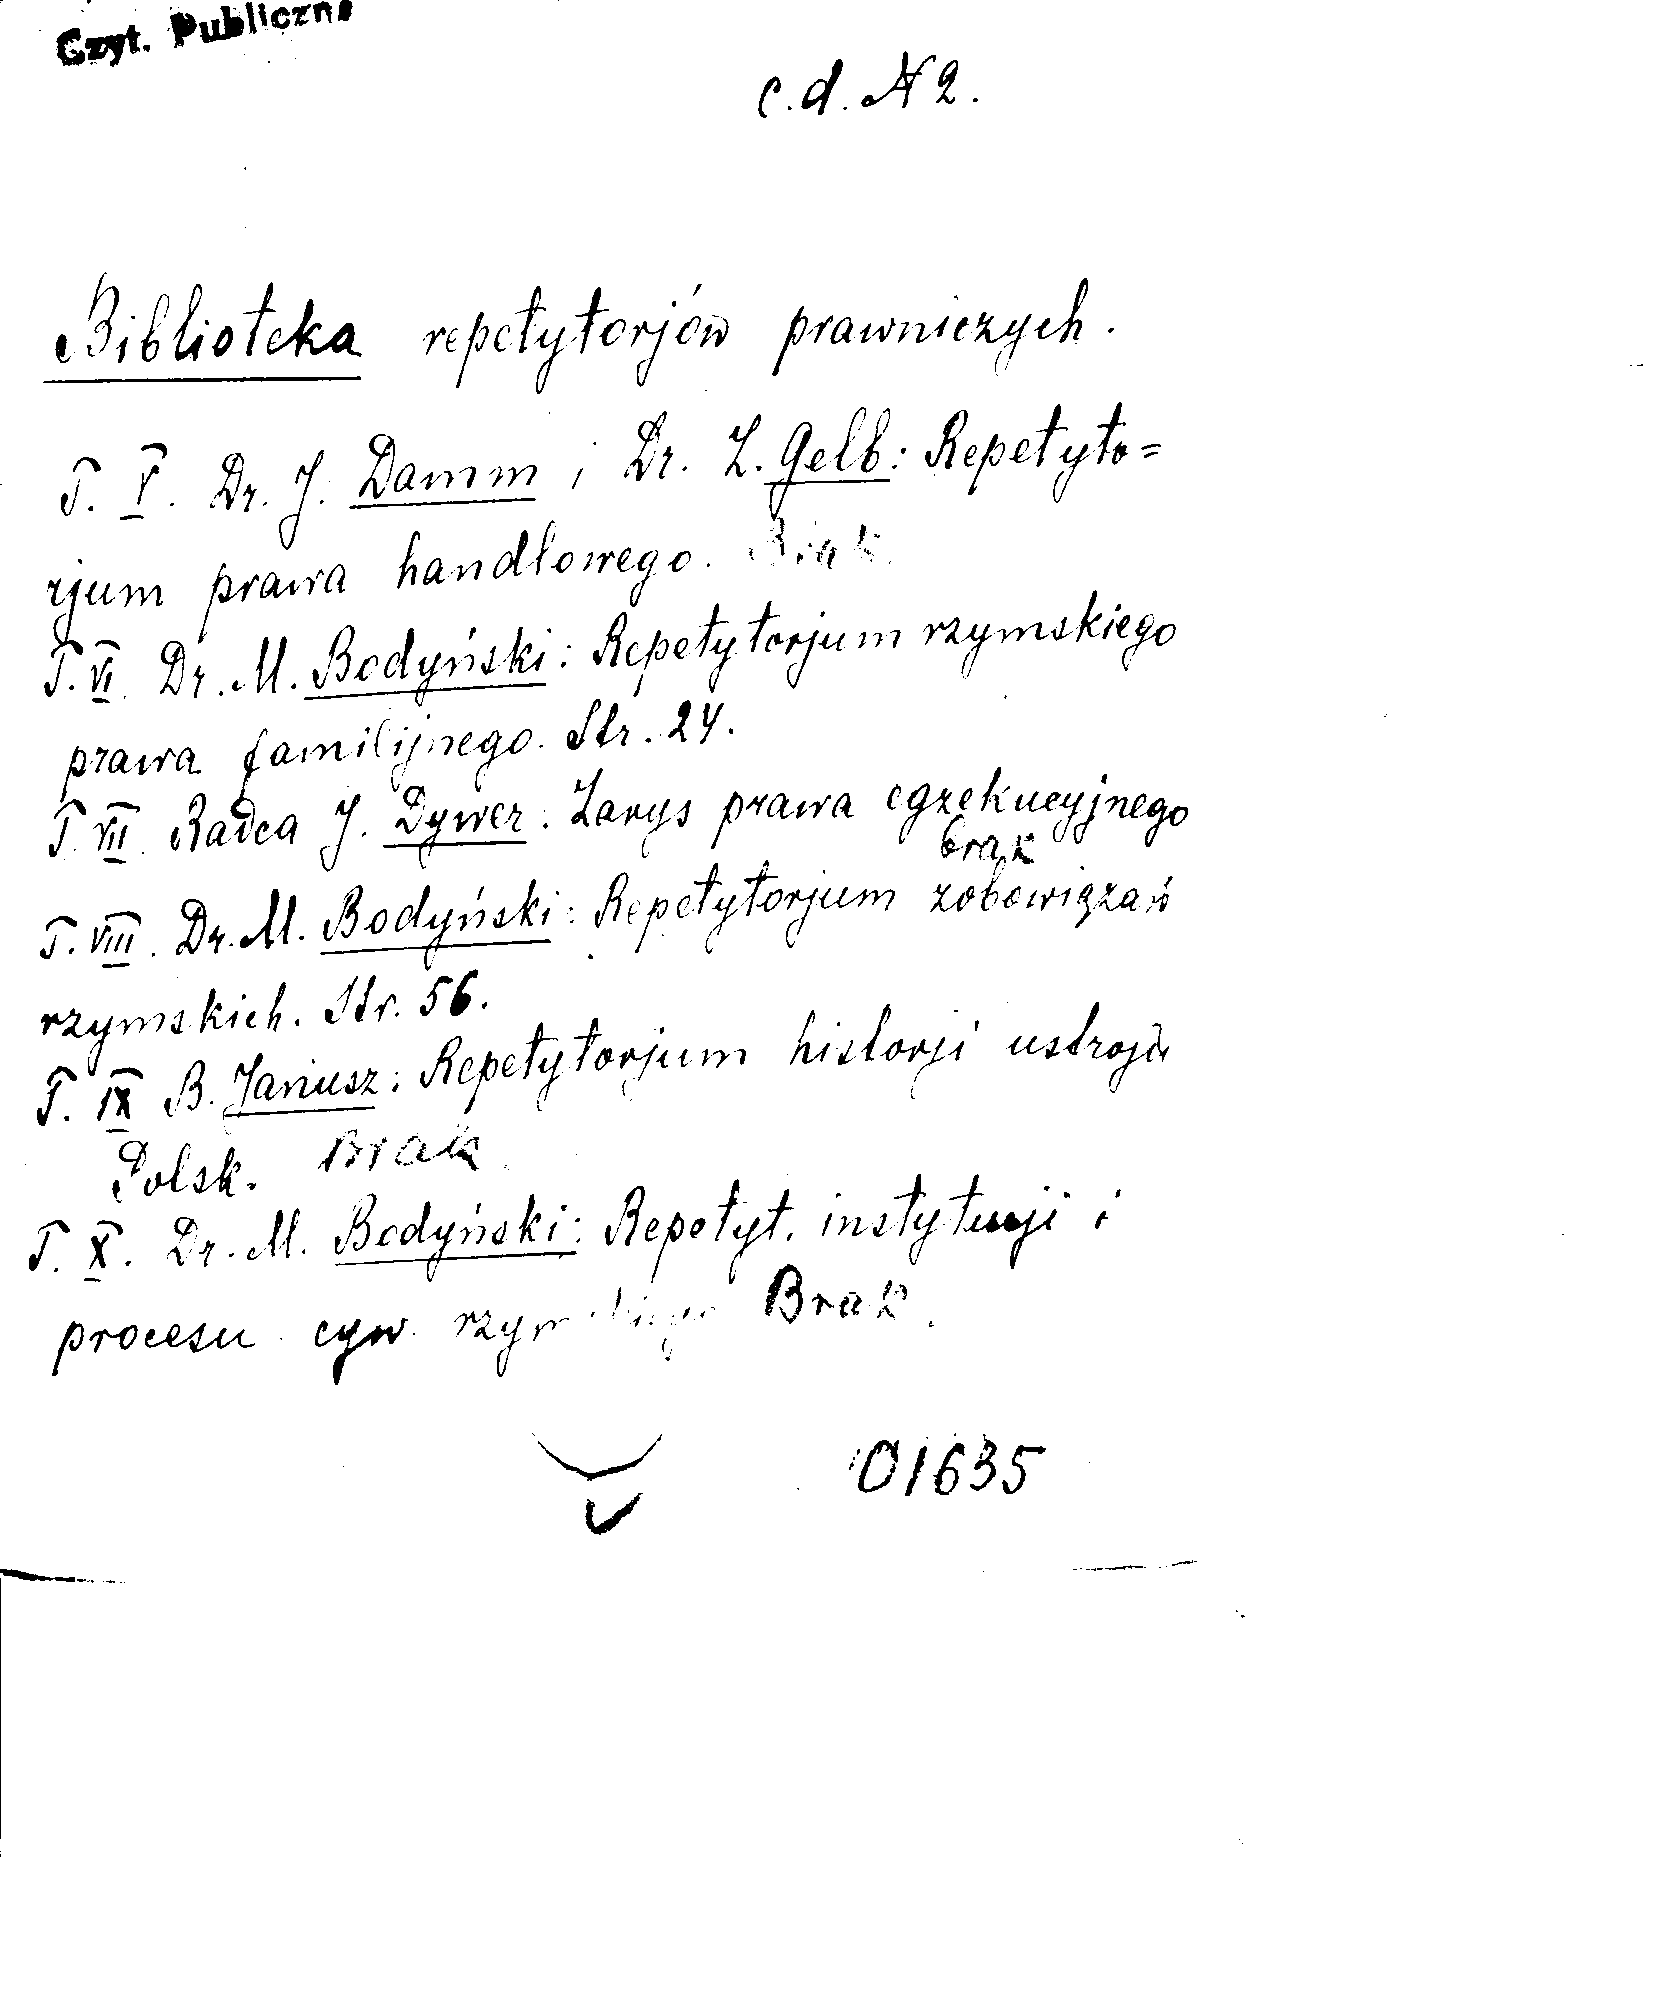 Czyt. Publiczna
c.d. № 2.
Biblioteka repetytorjów prawniczych.
T. V. Dr. J. Damm i Dr. Z. Gelb: Repetyto=
rjum prawa handlowego. Brak
T. VI. Dr. M. Bodyński: Repetytorjum rzymskiego
prawa familijnego. Str. 24.
T. VII. Radca J. Dywer: Zarys prawa egzekucyjnego
brak
T. VIII. Dr. M. Bodyński: Repetytorjum zobowiązań
rzymskich. Str. 56.
T. IX B. Janusz: Repetytorjum historji ustroju
Polsk. Brak
T. X. Dr. M. Bodyński: Repetyt. instytucji i
procesu cyw. rzymskiego Brak.
01635